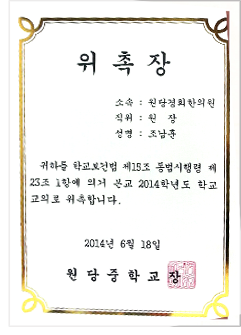 위 촉 장
소속 : 원당경희한의원
직위 : 원 장
성명 : 조남훈
귀하를 학교보건법 제15조 동법시행령 제
23조 1항에 의거 본교 2014학년도 학교
교의로 위촉합니다.
2014년 6월 18일
원 당 중 학 교 장